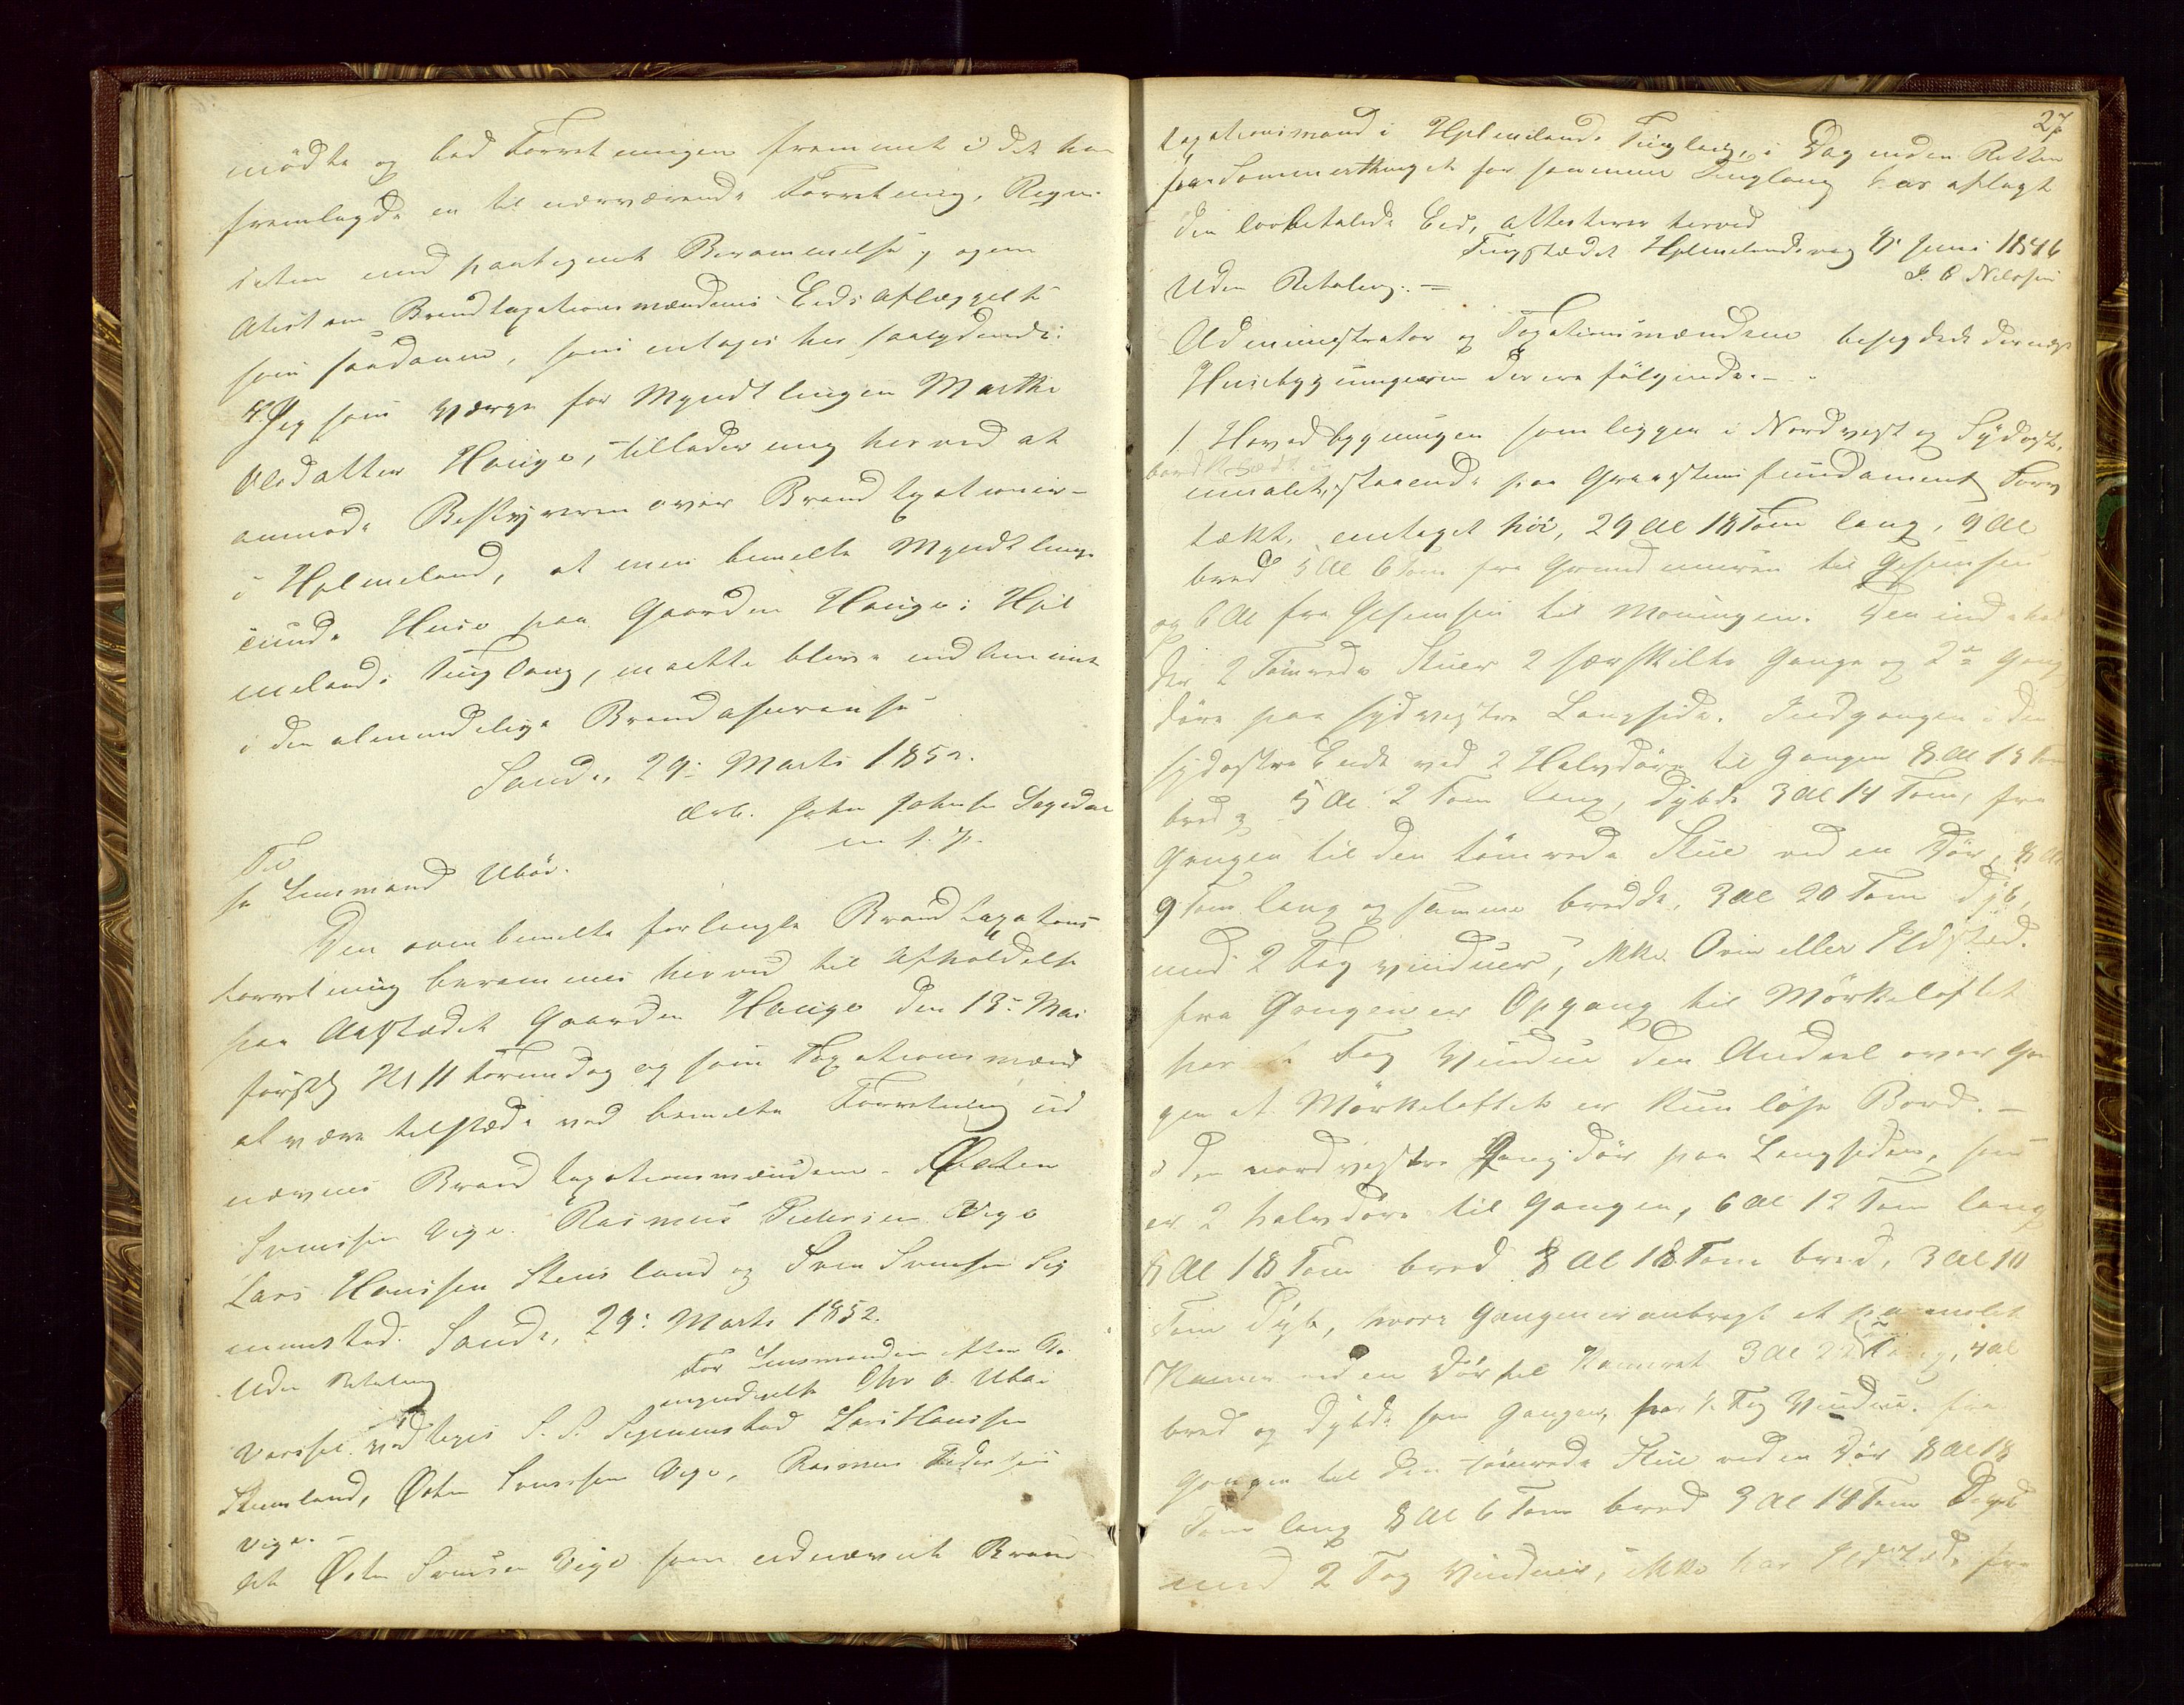 mödte og bad Forretningen fremmet i det han
fremlagde en til nærværende Forretning, Reqvi-
sition med paategnet Berammelse, og en
Atest om Brandtaxationsmændenes Eds Aflæggelse
som saadanne, som intages her saalydende:
Jeg som Værge for Myndtlingen Marthe
Olsdatter Hauge, tillader mig herved at
anmode Bestyreren over Brandtaxationer
i Hjelmeland, at min bemelte Myndtlings
Huse paa Gaarden Hauge i Hjel
melands Tinglaug, maatte blive indlemmet
i den almindelige Brandasurense
Sand, 29. Marts 1852.
Ærb. John Johnsen
m. f. P.
Til
Hr Lensmand Ubøe.
Den ovenbemelte forlangte Brandtaxations
forretning berammes herved til Afholdelse
paa Aastædet Gaarden Hauge den 13. Mai
förstk Kl 11 Formidag og som Taxationsmænd
at være tilstæde ved bemelte Forretning ud
nævnes Brandtaxationsmændene Østen
Svensen Vige. Rasmus Pedersen Vige
Lars Hansen Stensland og Sven Svensen Sig
menstad. Sand, 29. Marts 1852.
Uden Betaling
For Lensmanden efter Be
myndigelse Chr O. Ubøe
Varsel vedtages S. S. Sigmenstad Lars Hansen
Stensland, Østen Svensen Vige, Rasmus Pedersen
Vige.
At Østen Svensen Vige som udnævnt Brand
27
taxationsmand i Hjelmelands Tinglaug, i Dag inden Retten
paa Sommerthinget for samme Tinglaug har aflagt
den lovbefalede Eed, attesteres herved
Tingstædet Hjelmelandsvaag 8. Juni 1846
Uden Betaling. =
J. C. Nilssen
Administrator og Taxationsmændene besigtede dernæst
Husebygningerne der ere følgende. -
1. Hovedbygningen som ligger i Nordvest og Sydost,
bordklædt og
umalet, staaende paa Graastens fundament, Torv
tækt, entaget höi, 29 Al 18 Tom lang, 9 Al
bred 5 Al 6 Tom fra Grundmuren til Gesimsen
og 6 Al fra Gesimsen til Moningen. Den indehol
der 2 Tömrede Stuer 2 særskilte Gange og 2de Gang
döre paa sydvestre Langside. Indgangen i den
sydostre Ende ved 2 Halvdöre til Gangen 8 Al 13 Tom
bred og 5 Al 2 Tom lang, dybde 3 Al 14 Tom, fra
Gangen til den tömrede Stue ved en Dör, 8 Al
9 Tom lang og samme bredde, 3 Al 20 Tom dyb,
med 2 Fag vinduer, ikke Ovn eller Ildsted.
fra Gangen er Opgang til Mörkeloftet
har 1 Fag Vindue den Andeel over Gan
gen at Mörkeloftet er kun löse Bord. -
i den nordvestre Gangdör paa Langsiden, som
er 2 halvdöre til Gangen, 6 Al 12 Tom lang
8 Al 18 Tom bred 8 Al 18 Tom bred, 3 Al 10
Tom dyb, hvor Gangen er anbragt et pa malet
Kammer ved en Dör til Kammeret 3 Al 22 Tom lang, 4 Al
bred og dybde som Gangen, har 1 Fag Vindue. fra
Gangen til den tömrede Stue ved en Dör 8 Al 18
Tom lang 8 Al 6 Tom bred 3 Al 14 Tom Dyb
med 2 Fag Vinduer, ikke har Ildsted, fra